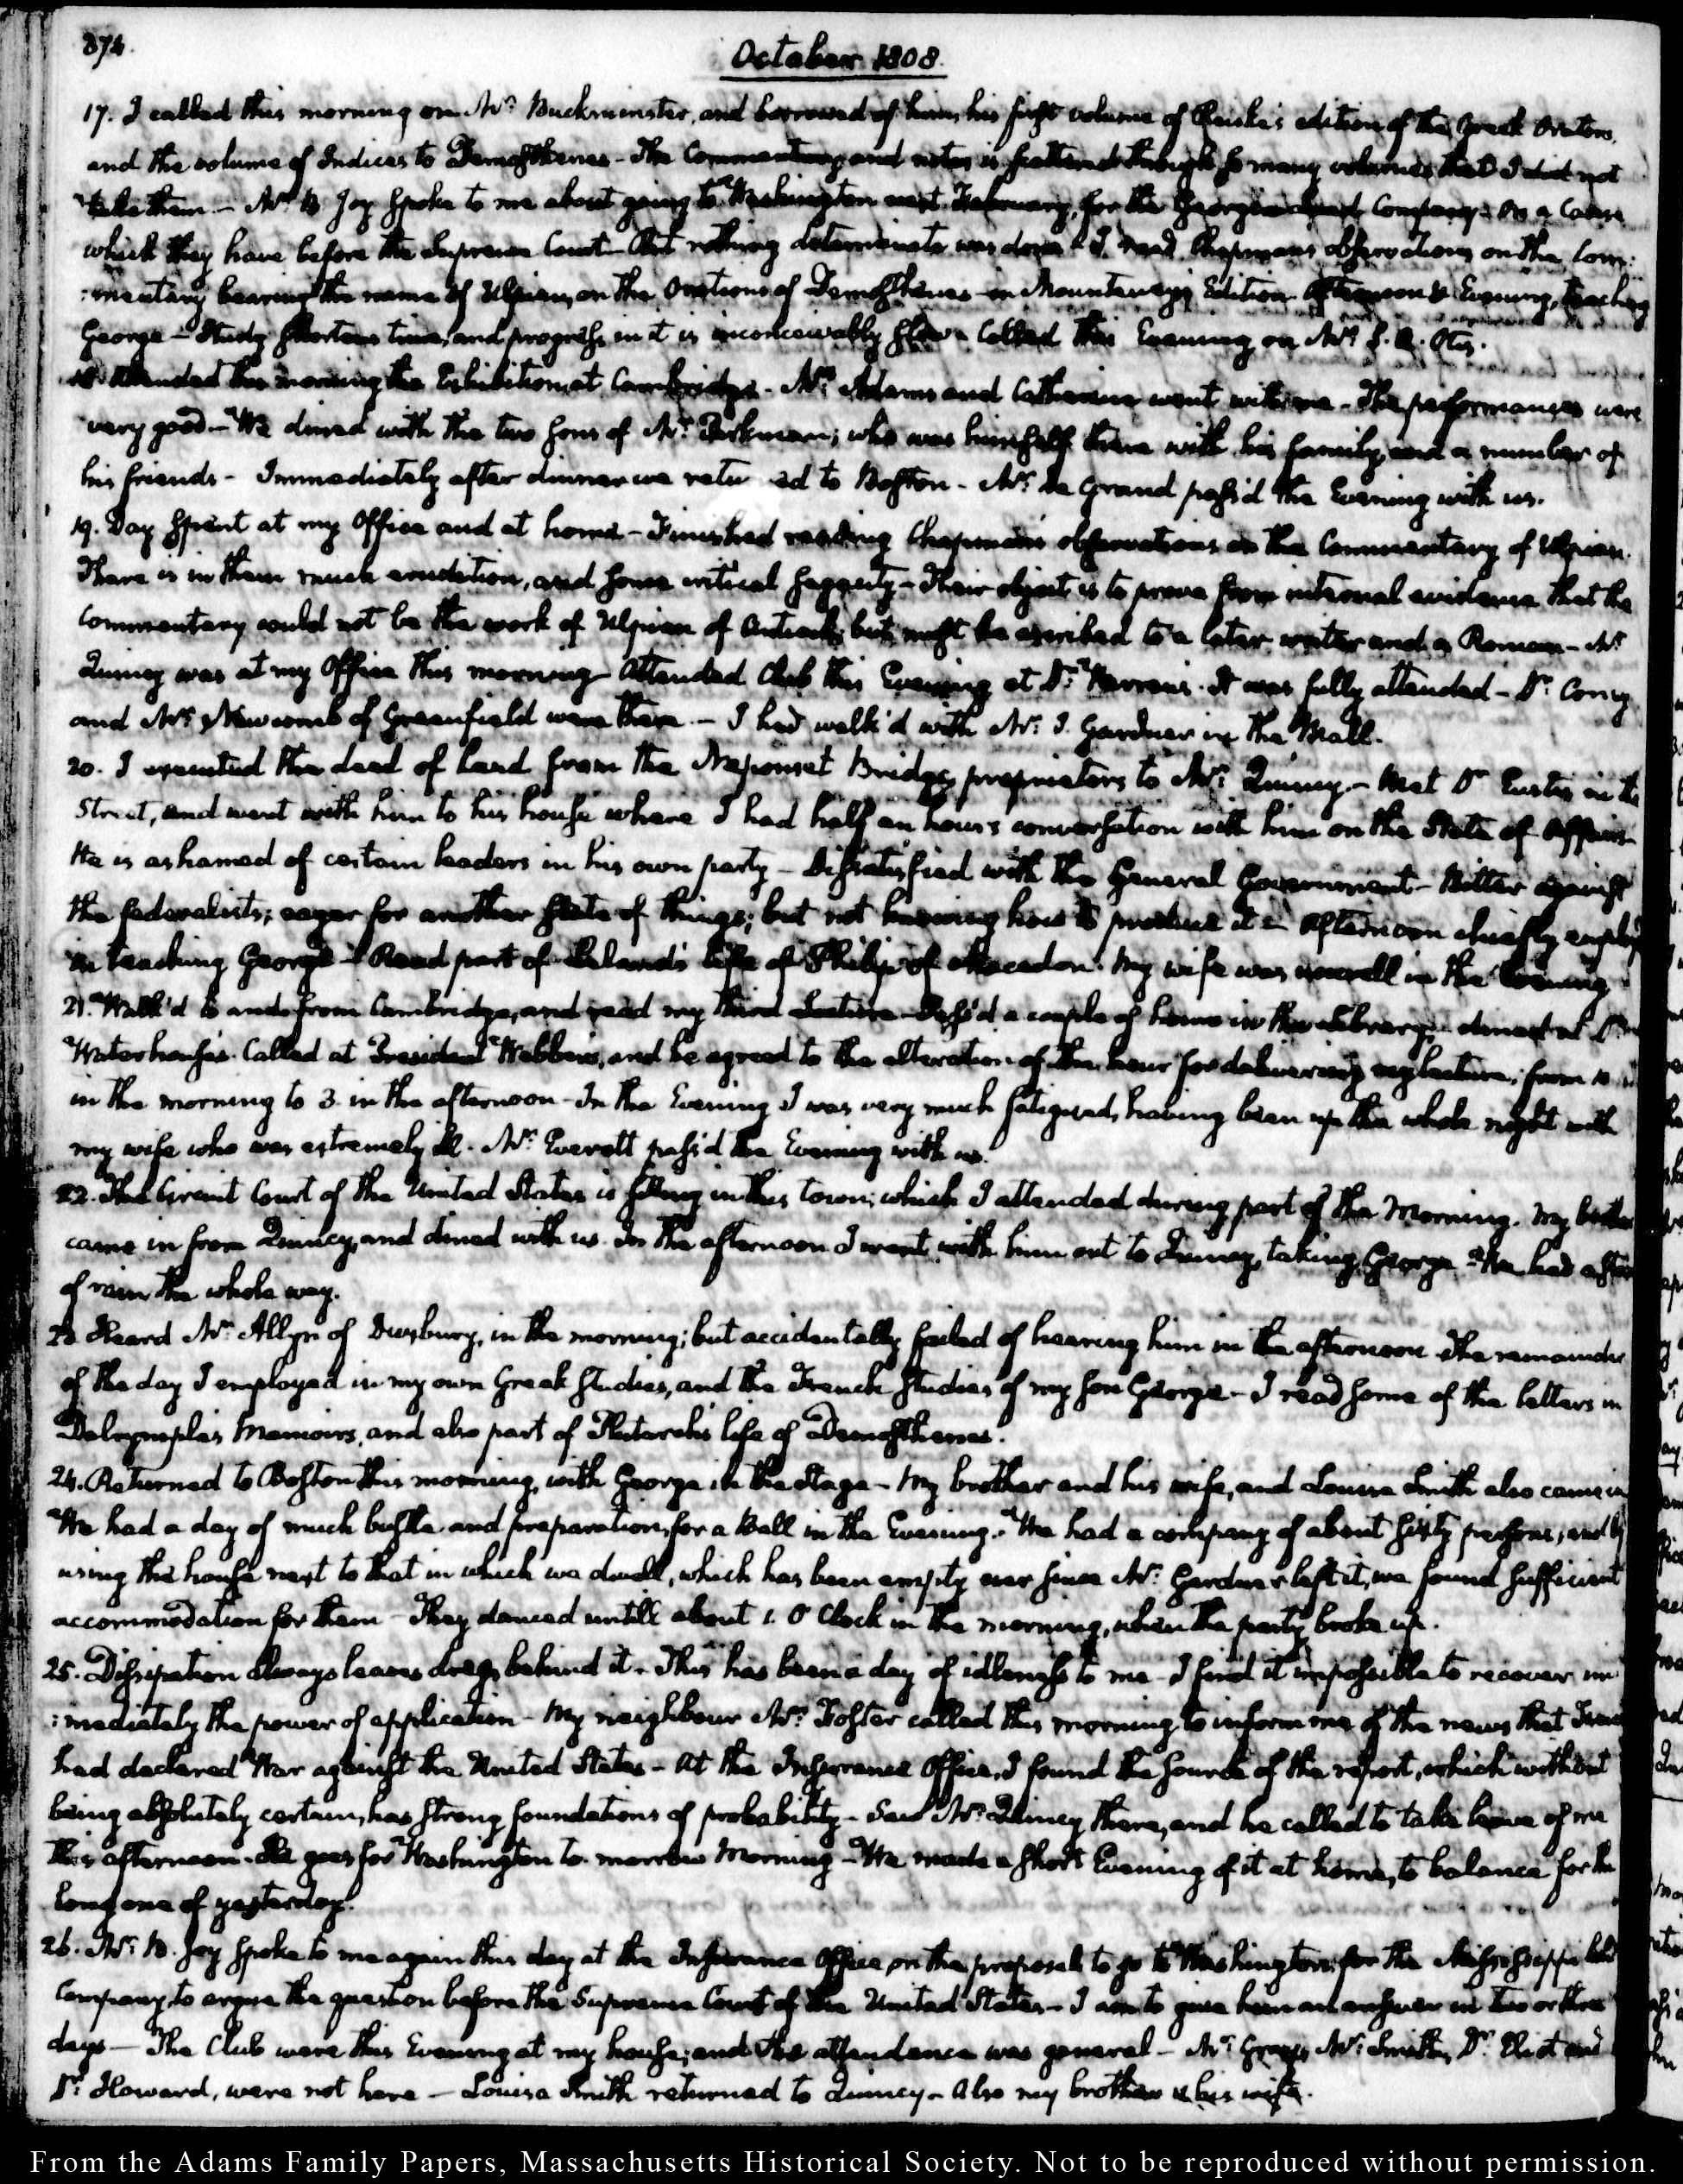 374.
October 1808.
17. I called this morning on Mr. Buckminster, and borrowed of him, his first volume of Reiske's edition of the Greek Orators,
and the volume of Indices to Demosthenes - The Commentary and notes is scattered through so many volumes, that I did not
take them. - Mr. B. Joy spoke to me about going to Washington next February, for the Georgia Land Company, on a Cause
which they have before the Supreme Court - But nothing determinate was done - I read Chapman's observations on the Com:
:mentary bearing the name of Ulpian, on the Orations of Demosthenes - in Mounteney's Edition. Afternoon & Evening, teaching
George - Study shortens time, and progress in it is inconceivably slow. Called this Evening on Mr. S. A. Otis.
18. Attended this morning the Exhibition, at Cambridge. - Mrs. Adams and Catherine went with me - The performances were
very good. - We dined with the two sons of Mr. Parkman; who was himself there with his family, and a number of
his friends - Immediately after dinner we retu ed to Boston - Mr. De Grand pass'd the Evening with us.
19. Day spent at my Office and at home - Finished reading Chapman's observations on the Commentary of Ulpian.
There is in them much erudition, and some critical sagacity - Their object is to prove from internal evidence that the
Commentary could not be the work of Ulpian of Antioch; but must be ascribed to a later writer and a Roman - Mr.
Quincy was at my Office this morning - Attended Club this Evening at Dr. Warren's. It was fully attended - Dr. Cony
and Mr. Newcomb of Greenfield were there. - I had walk'd with Mr. J. Gardner in the Mall.
20. I executed the deed of Land from the Neponset Bridge proprietors to Mr. Quincy. - Met Dr. Eustis in the
Street, and went with him to his house where I had half an hour's conversation with him on the State of Affairs.
He is ashamed of certain leaders in his own party - Dissatisfied with the General Government - Bitter against
the federalists; eager for another state of things; but not knowing how to produce it - Afternoon chiefly employ'd
in teaching George - Read part of Leland's Life of Philip of Macedon. My wife was unwell in the Evening
21. Walk'd to and from Cambridge, and read my third Lecture - Pass'd a couple of hours in the Library - dined at Dr.
Waterhouse's. Called at President Webber's, and he agreed to the alteration of the hour for delivering my lecture; from 10
in the morning to 3 in the afternoon - In the Evening I was very much fatigued, having been up the whole night with
my wife who was extremely ill. Mr. Everett pass'd the Evening with us.
22. The Circuit Court of the United States is sitting in this town; which I attended during part of the Morning. My brother
came in from Quincy, and dined with us. In the afternoon I went with him out to Quincy, taking George. We had a
of rain the whole way.
23. Heard Mr. Allyn of Duxbury, in the morning; but accidentally failed of hearing him in the afternoon. The remainder
of the day I employed in my own Greek studies, and the French studies of my son George - I read some of the letters in
Dalrymple's Memoirs, and also part of Plutarch's life of Demosthenes.
24. Returned to Boston this morning, with George in the Stage - My brother and his wife, and Louisa Smith also came in
We had a day of much bustle and preparation, for a Ball in the Evening. We had a company of about sixty persons; and by
using the house next to that in which we dwell, which has been empty ever since Mr. Gardner left it, we found sufficient
accommodation for them - They danced untill about 1. O'Clock in the morning, when the party broke up.
25. Dissipation always leaves dregs behind it. This has been a day of idleness to me - I find it impossible to recover im
:mediately the power of application - My neighbour Mr. Foster called this morning to inform me of the news that France
had declared War against the United States - At the Insurance Office, I found the source of the report, which without
being absolutely certain, has strong foundations of probability - Saw Mr. Quincy there, and he called to take leave of me
this afternoon. He goes for Washington to-morrow Morning - We made a short Evening of it at home, to balance for the
long one of yesterday.
26. Mr. B. Joy spoke to me again this day at the Insurance Office on the proposal to go to Washington for the Mississippi Land
Company, to argue the question before the Supreme Court of the United States - I am to give him an answer in two or three
days - The Club were this Evening at my house; and the attendance was general - Mr. Gray, Mr. Smith, Dr. Eliot and
Dr. Howard, were not here - Louisa Smith returned to Quincy - Also my brother & his wife.
From the Adams Family Papers, Massachusetts Historical Society. Not to be reproduced without permission.